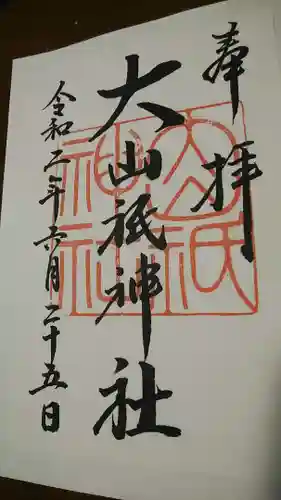 奉拝
大山祇神社
令和二年六月二十五日
大山祇
神社